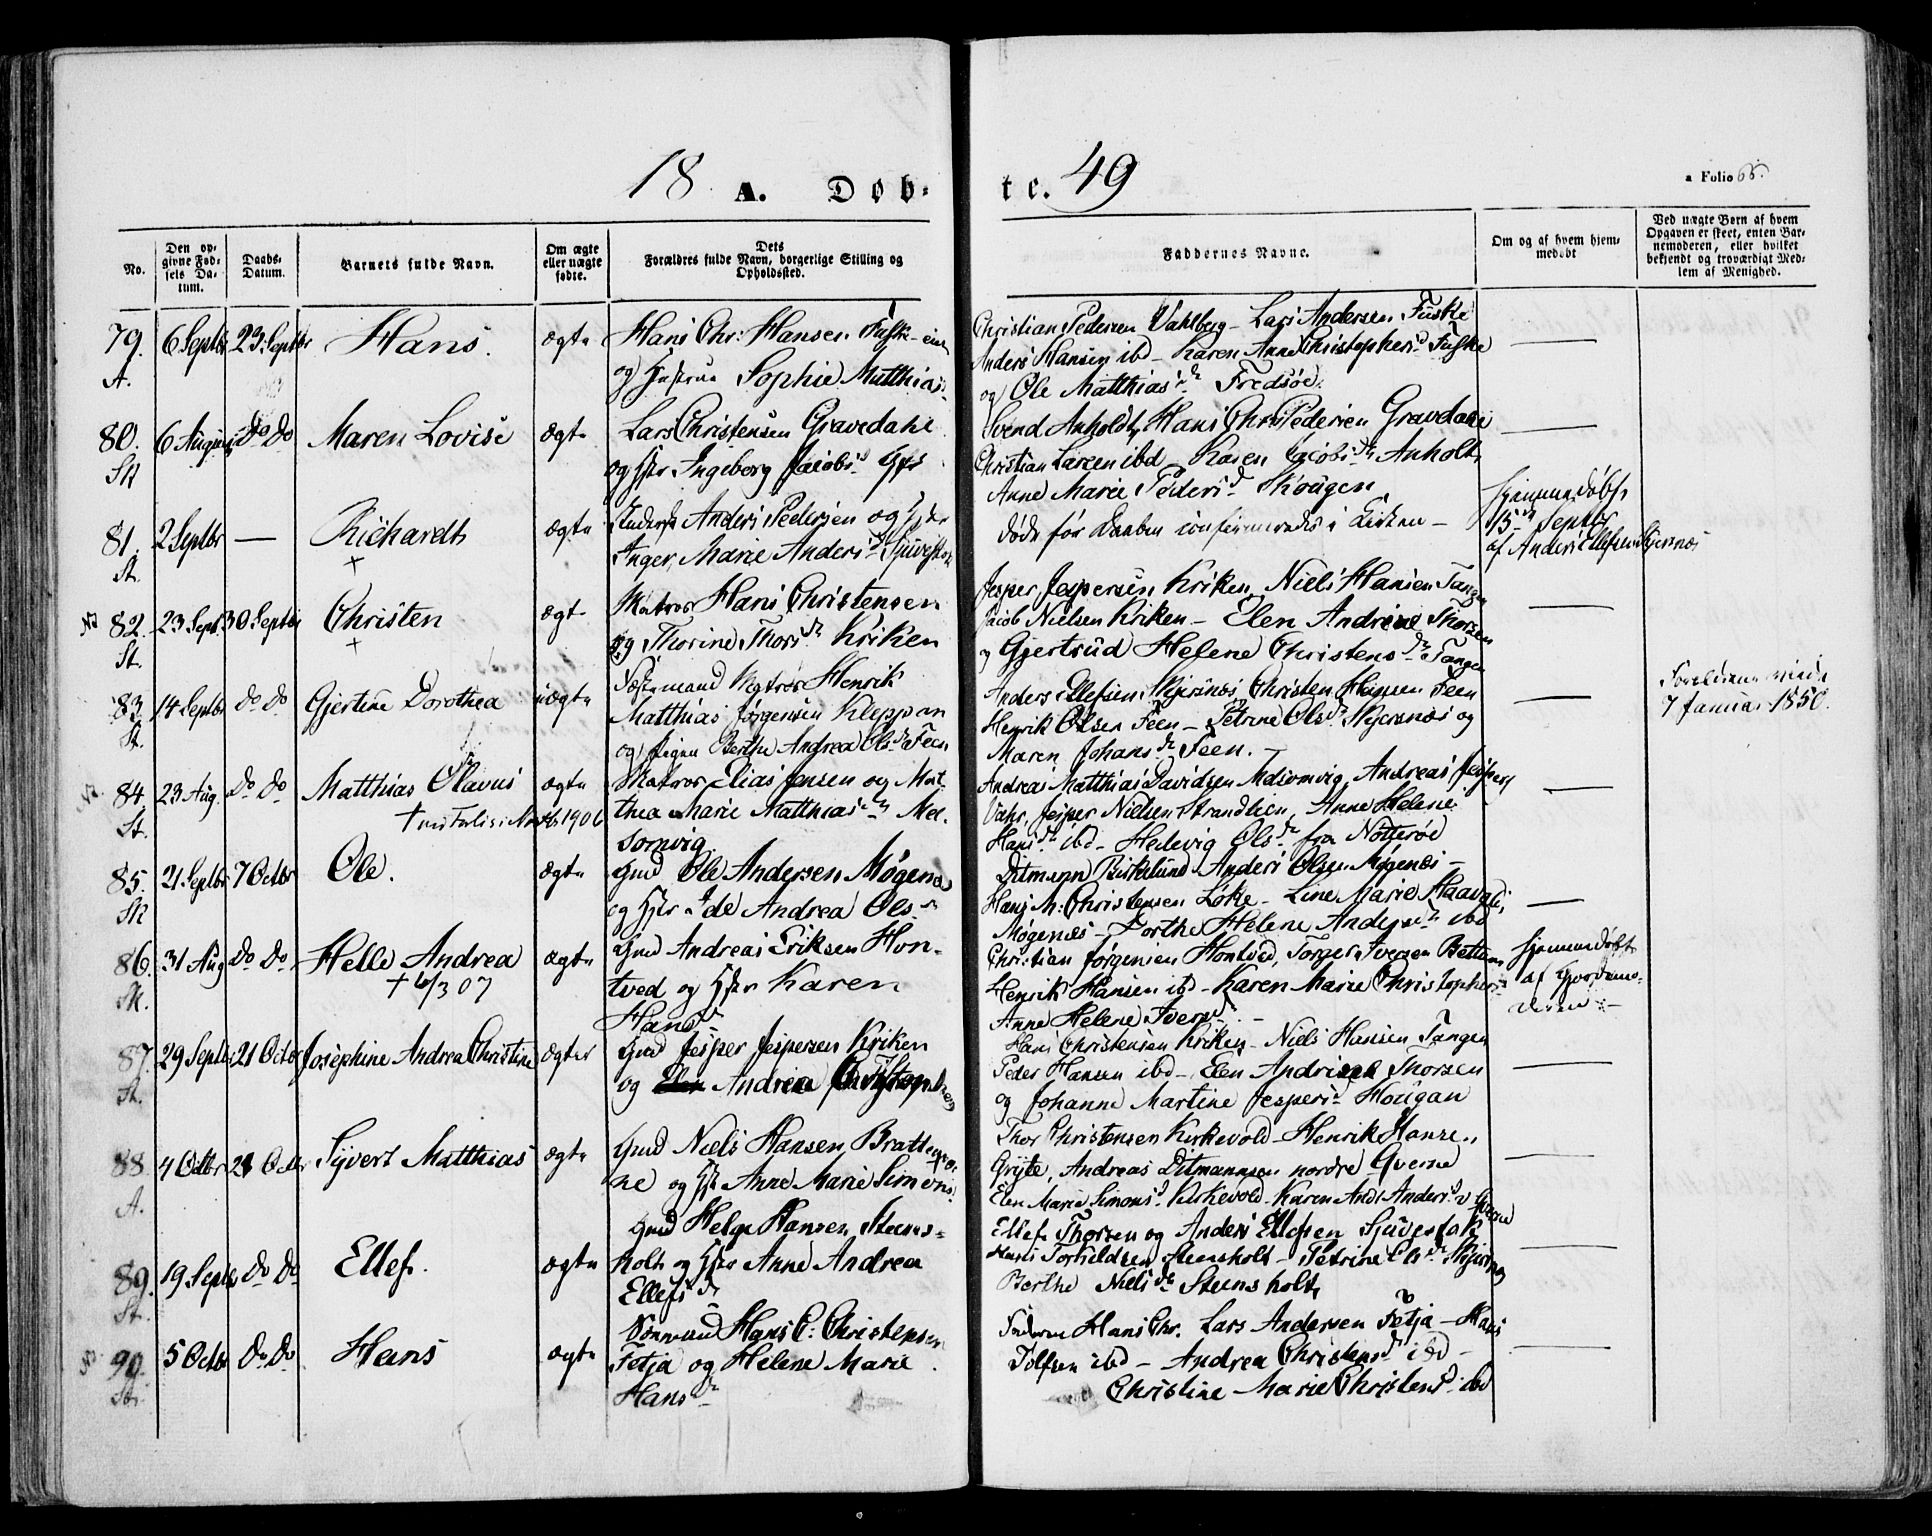 18 A. Døb-
te. 49
a Folio 66.
No.
Den op-
givne Fød-
sels Da-
tum.
Daabs-
Datum.
Barnets fulde Navn.
Om ægte
eller uægte
fødte.
Dets
Forældres fulde Navn, borgerlige Stilling og
Opholdssted.
Faddernes Navne.
Om og af hvem hjem-
medøbt
Ved uægte Børn af hvem
Opgaven er skeet, enten Bar-
nemoderen, eller hvilket
bekjendt og troværdigt Med-
lem af Menighed.
79. 6 Septbr 23 Septbr Hans. ægte Hans Chr: Hansen Fuske
A. og Hustrue Sophie Matthias
Christian Pedersen Vahlberg - Lars Andersen Fuske
Anders Hansen ibd - Karen Anne Christophersd Fuske
og Ole Matthiasd Fredsøe.
80. 6 August Do Do Maren Lovise ægte Lars Christensen Gravdahl
Sk og Hstr Ingeborg Jacobsd
Svend Anholdt, Hans Chr Pedersen Gravdahl
Christian Larsen ibd Karen Jacobsdr Anholt,
Anne Marie Pedersd Skougen
81. 2 Septbr — Richardt ægte Anders Pedersen og Hstr
St. + Inger Marie Andersd Sjuestok
døde før Daaben confirmeredes i Kirken -
Hjemmedøbt
15de Septbr
af Anders Ellefsen Skjersnæs
82. 23 Sept. 30 Septbr Christen ægte Matros Hans Christensen
St. + og Thorine Thorsdr Kriken
Jesper Jespersen Kriken, Niels Hansen Tangen
Jacob Nielsen Kriken - Elen Andrine Thorsen
og Gjertrud Helene Christensdr Tangen
83. 14 Septbr Do Do Gjertine Dorothea uægte Matros Henrik
St. Matthias Jørgensen Kleppan
og Pigen Berthe Andrea Olsdr Feen
Anders Ellefsen Skjersnæs, Christen Hansen Feen
Henrik Olsen Feen - Petrine Olsdr Skjersnæs og
Maren Johansdr Feen. -
7 Januar 1850.
84. 23 Aug. Do Do Matthias Olavus ægte Matros Elias Jensen og Mat
St. + 1906 thea Marie Matthiasdr Mel
somvig
Andreas Matthias Davidsen Melsomvig, Andreas Jespers
Jesper Nielsen Strandlien, Anne Helene
Hansdr ibd - Hedevig Olsdr fra Nøtterøe
85. 21 Septbr 7 Octbr Ole. ægte Gmd Ole Andersen Møgenæs
Sk og Hstr Ide Andrea Olsdr
Ditmann Birkelund Anders Olsen Møgenæs -
Hans M: Christensen Løke - Line Marie
Møgenæs - Dorthe Helene Andersdr ibd
86. 31 Aug Do Do Helle Andrea ægte Gmd Andreas Eriksen Hon-
Sk. + 6/3 07 tved og Hstr Karen
Hansdr
Christian Jørgensen Hontved, Torger Iversen Bettum
Henrik Hansen ibd - Karen Marie Christophersd
Anne Helene Iversdr
Hjemmedøbt
af Gjordemo-
deren -
87. 29 Septbr 21 Octbr Josephine Andrea Christine ægte Gmd Jesper Jespersen Kriken
St. og Andrea
Hans Christensen Kriken - Niels Hansen Tangen
Peder Hansen ibd - Elen Andrine Thorsen
og Johanne Martine Jespersdr Hougan
88. 4 Octbr 21 Octbr Sivert Matthias ægte Gmd Niels Hansen Bratteqver
A. ne og Hstr Anne Marie Simons.
Thor Christensen Kirkevold - Henrik Hanse,
Gryte, Andreas Ditmannsen nordre Qverne
Elen Marie Simonsd Kirkevold - Karen And: Andersd Qverne
89. 19 Septbr Do Do Ellef. ægte Gmd Helge Hansen Steens-
St. holt og Hstr Anne Andrea
Ellefsdr
Ellef Thorsen og Anders Ellefsen Sjuestok
Hans Torkildsen Steensholt - Petrine Olsdr Skjersnæs
Berthe Nielsdr Steensholt
90. 5 Octbr Do Do Hans ægte Hans C: Christensen
St. Fetja og Helene Marie
Hansdr
Faderen Hans Chr. Lars Andersen Fetja - Hans
Tolfsen ibd - Andrea Christensd ibd -
Christine Marie Christensd ibd